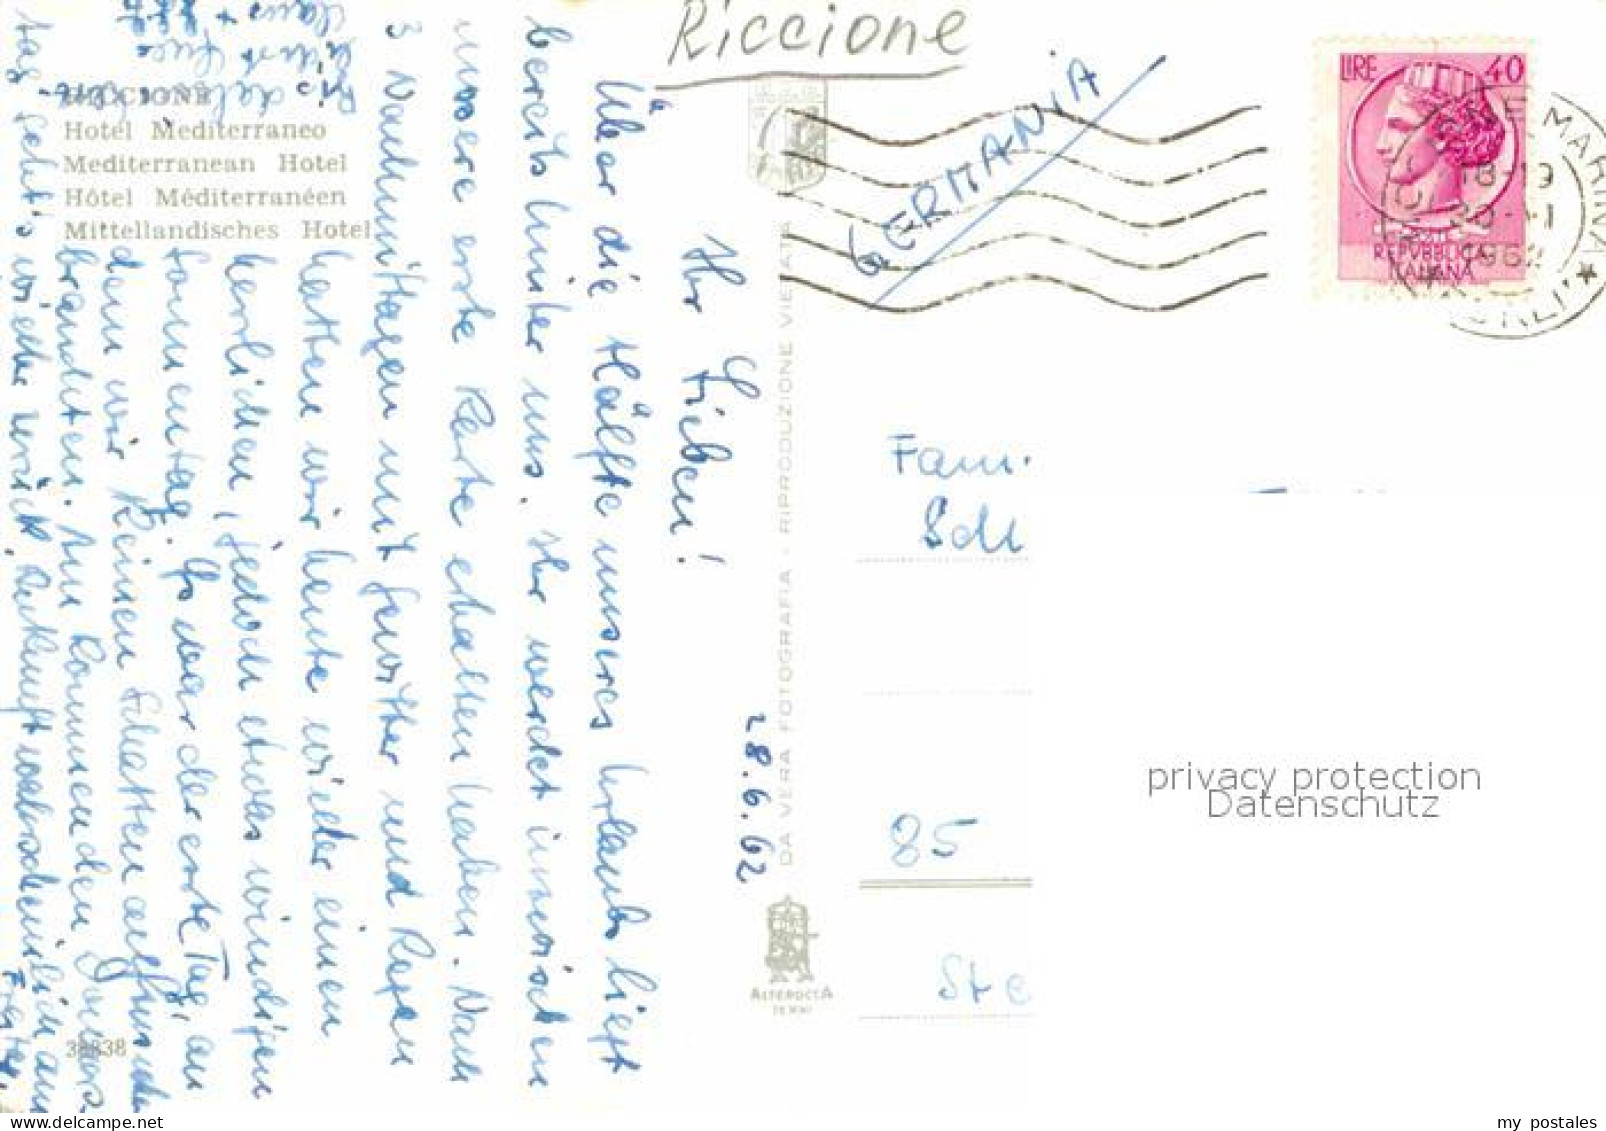 Riccione
GERMANIA
LIRE 40
REPVBBLICA
ITALIANA
18-19
1962
RICCIONE
Hotel Mediterraneo
Mediterranean Hotel
Hôtel Méditerranéen
Mittellandisches Hotel
28.6.62
Ihr Lieben!
Über die Hälfte unseres Urlaubs liegt
bereits hinter uns. Ihr werdet inzwischen
unsere erste Karte erhalten haben. Nach
3 Nachmittagen mit Gewitter und Regen
hatten wir heute wieder einen
herrlichen, jedoch etwas windigen
Sonnentag. Es war der erste Tag, an
dem wir keinen Schatten aufsuchen
brauchten. Am kommenden Donners
tag geht's wieder zurück. Ankunft wahrscheinlich am
Freitag.
Fam.
Sch
85
DA VERA FOTOGRAFIA - RIPRODUZIONE VIETATA
ALTEROCCA
TERNI
38838
privacy protection
Datenschutz
my postales